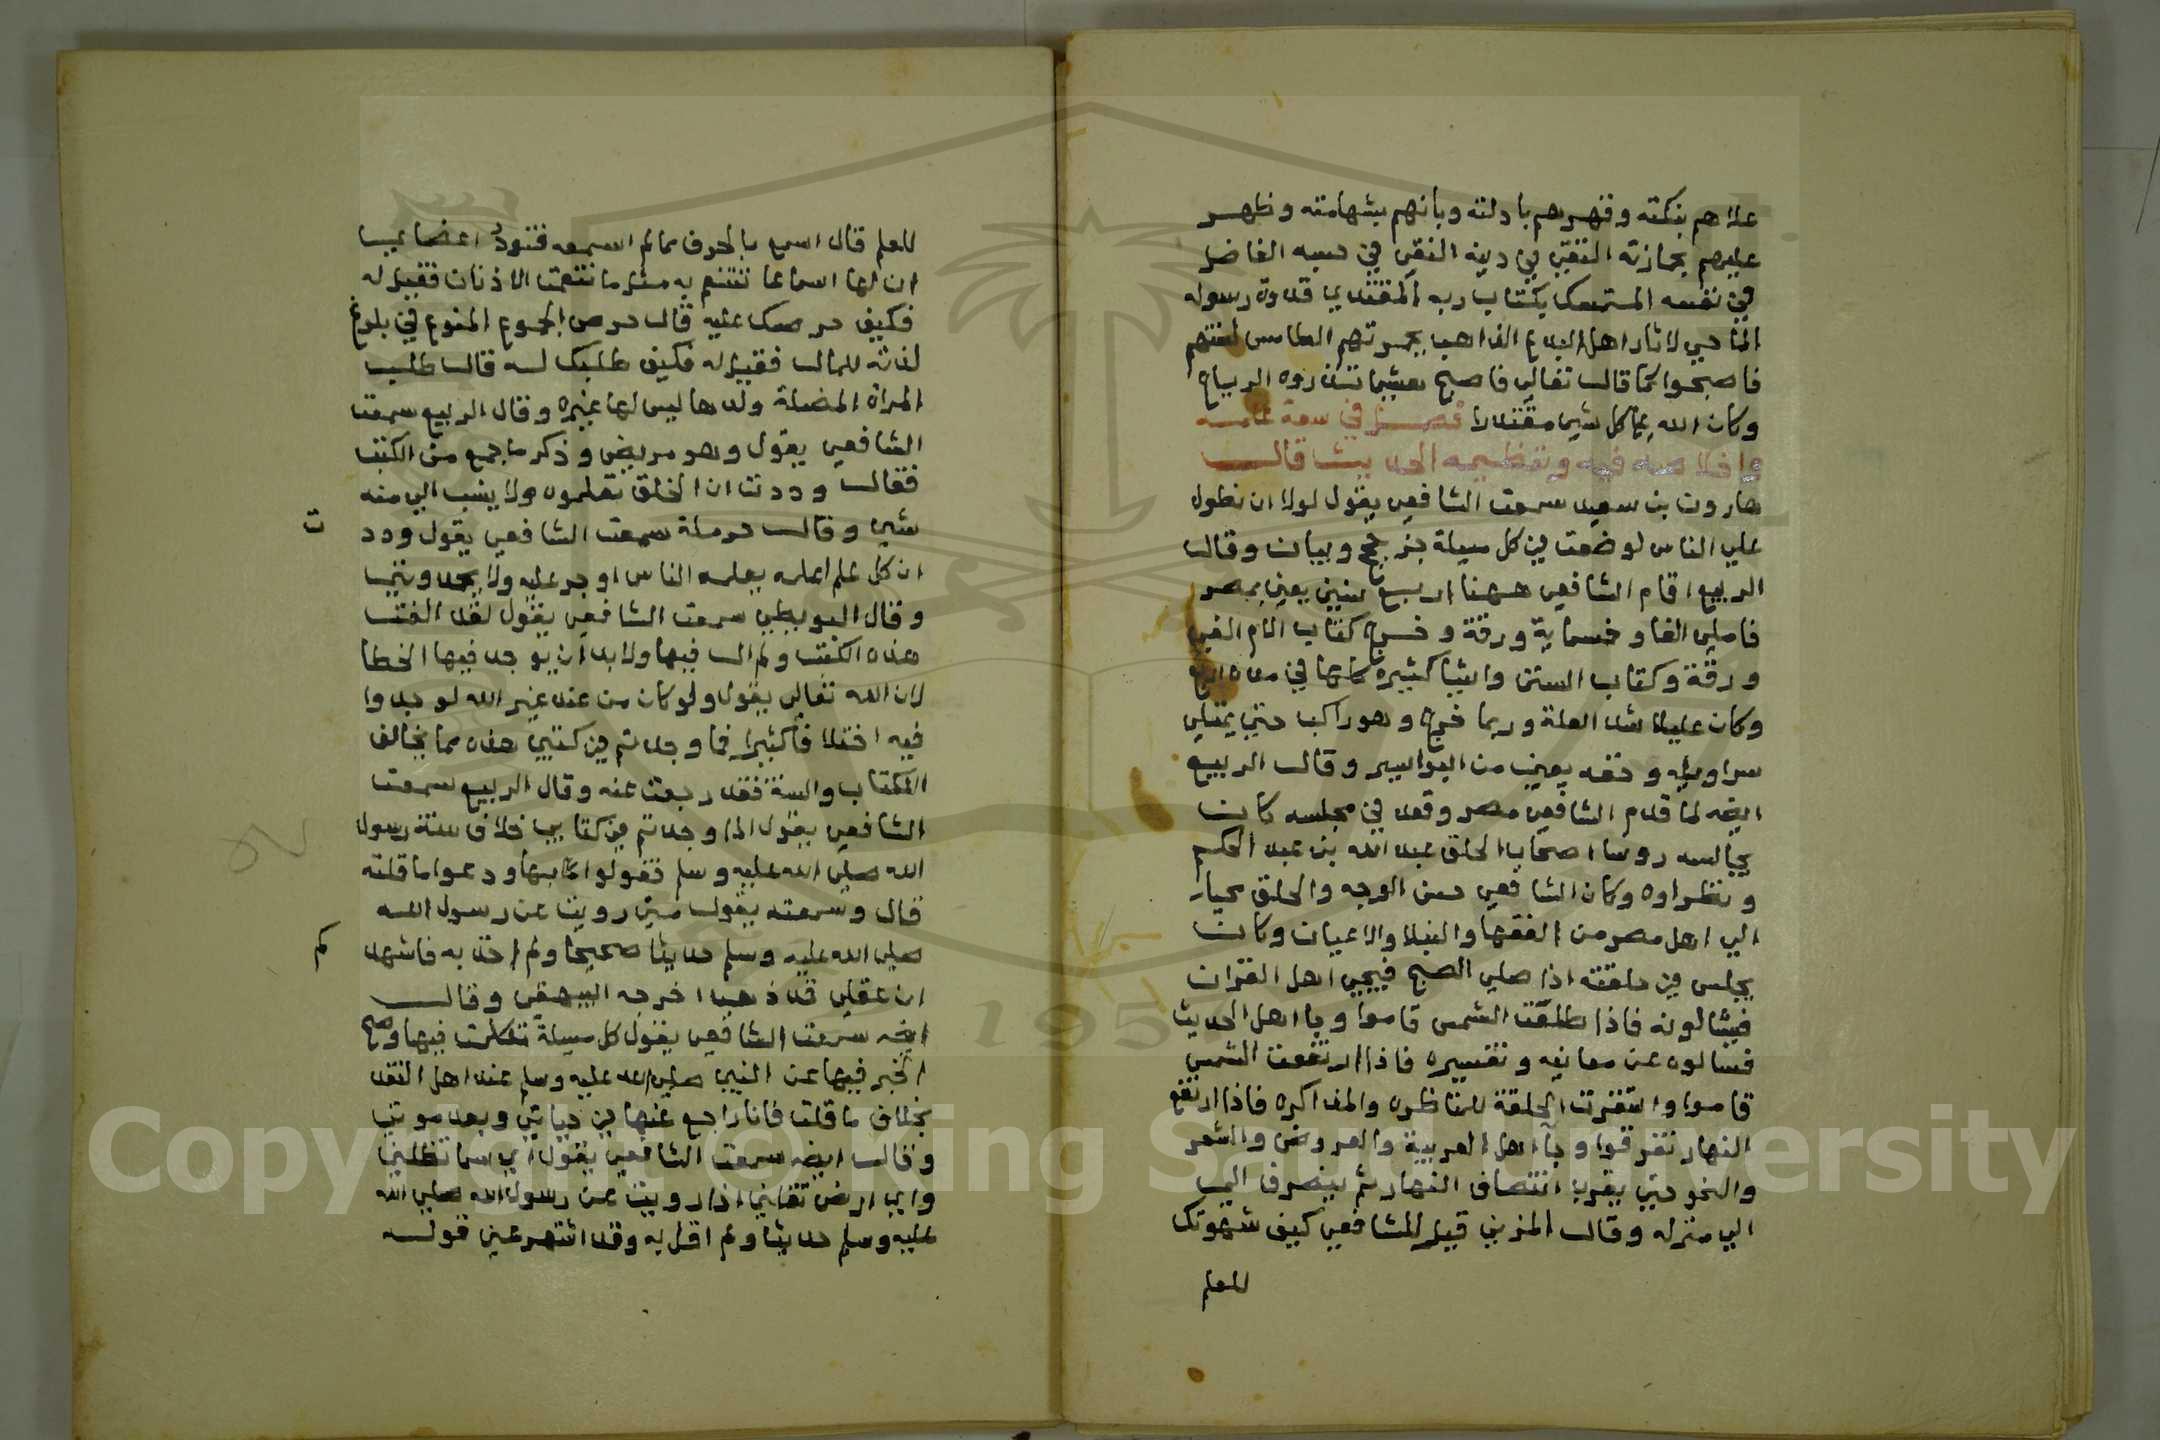 علاهم بنكته وقهرهم بادلته وبانهم بشهامته وظهر
عليهم التقي في دينه النقي في حسبه الفاضل
في نفسه المتمسك بكتاب ربه المقتدي قدوة رسوله
الماحي لاثار اهل البدع الذاهب بجمرتهم الطامس لفتنهم
فاصبحوا كما قال تعالي فاصبح هشيما تذروه الرياح
وكان الله علي كل شي مقتدرا فصل في سعة علمه
واخلاصه فيه وتعظيمه الحديث قال
هارون بن سعيد سمعت الشافعي يقول لولا ان نطول
علي الناس لوضعت في كل مسيلة جز حجج وبيان وقال
الربيع اقام الشافعي ههنا اربع سنين يعني بمصر
فاملي الفا وخسماية ورقة وخرج كتاب الام الفي
ورقة وكتاب السنن واشيا كثيره كلها في مدة اربع
وكان عليلا شد العلة وربما خرج وهو راكب حتي يمتلي
سراويله وخفه يعني من البواسير وقال الربيع
ايضه لما قدم الشافعي مصر وقعد في مجلسه كان
يجالسه روسا اصحاب الحلق عبد الله بن عبد الحكم
ونظراوه وكان الشافعي حسن الوجه والخلق
الي اهل مصر من الفقها والنبلا والاعيان وكان
يجلس في حلقته اذا صلي الصبح فيجي اهل القران
فيسالونه فاذا طلعت الشمس قاموا وجا اهل الحديث
فسالوه عن معانيه وتفسيره فاذا ارتفعت الشمس
قاموا واستقرت الحلقة للمناظره والمذاكره فاذا ارتفع
النهار تفرقوا وجآ اهل العربية والعروض والشعر
والنحو حتي يقرب انتصاف النهار ثم ينصرف الي
الي منزله وقال المزني قيل للشافعي كيف شهوتك
للعلم
للعلم قال اسمع بالحرف مما لم اسمعه فتود اعضايي
ان لها اسماعا تتنعم به مثل ما تنعمت الاذنان فقيل له
فكيف حرصك عليه قال حرص الجموع المنوع في بلوغ
لذاته للمال فقيل له فكيف طلبك له قال طلب
المراة المضلة ولدها ليس لها غيره وقال الربيع سمعت
الشافعي يقول وهو مريض وذكر ما جمع من الكتب
فقال وددت ان الخلق تعلموه ولا ينسب الي منه
شي وقال حرملة سمعت الشافعي يقول ودد
ت
ان كل علم اعلمه يعلمه الناس اوجر عليه ولا يحمدونني
وقال البويطي سمعت الشافعي يقول لقد الفت
هذه الكتب ولم ال فيها ولا بد ان يوجد فيها الخطا
لان الله تعالي يقول ولو كان من عند غير الله لوجدوا
فيه اختلافا كثيرا فما وجدتم في كتبي هذه مما يخالف
الكتاب والسنة فقد رجعت عنه وقال الربيع سمعت
الشافعي يقول اذا وجدتم في كتابي خلاف سنة رسول
الله صلي الله عليه وسلم فقولوا بها ودعوا ما قلته
قال وسمعته يقول متي رويت عن رسول الله
صلي الله عليه وسلم حديثا صحيحا ولم اخذ به فاشهد
كم
ان عقلي قد ذهب اخرجه البيهقي وقال
ايضه سمعت الشافعي يقول كل مسيلة تكلمت فيها وصح
الخبر فيها عن النبي صلي الله عليه وسلم عند اهل النقل
بخلاف ما قلت فانا راجع عنها في حياتي وبعد موتي
وقال ايضه سمعت الشافعي يقول اي سما تظلني
واي ارض تقلني اذا رويت عن رسول الله صلي الله
عليه وسلم حديثا ولم اقل به وقد اشتهر عني قوله
Copyright © King Saud University
1957